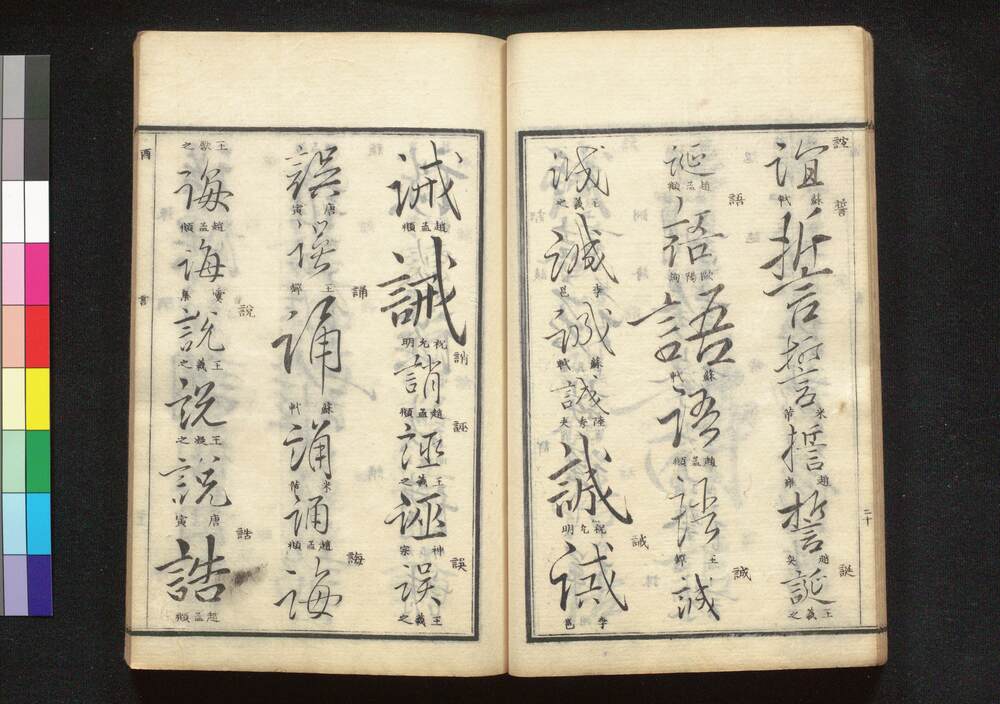 誼
誼
蘇軾
誓
誓
誓
米芾
誓
趙雍
誓
趙奕
誕
誕
王羲之
二十
誕
趙孟頫
語
語
歐陽詢
語
蘇軾
語
趙孟頫
語
王鐸
誠
誠
誠
王羲之
誠
李邕
誠
蘇軾
誠
陸秀夫
誠
祝允明
誡
誡
李邕
誡
趙孟頫
誡
祝允明
誚
誚
趙孟頫
誣
誣
王羲之
誣
神宗
誤
誤
王羲之
誤
唐寅
誤
王鐸
誦
誦
蘇軾
誦
米芾
誦
趙孟頫
誨
誨
王獻之
誨
趙孟頫
誨
虞集
說
說
王羲之
說
王凝之
說
唐寅
誥
誥
趙孟頫
酉
言